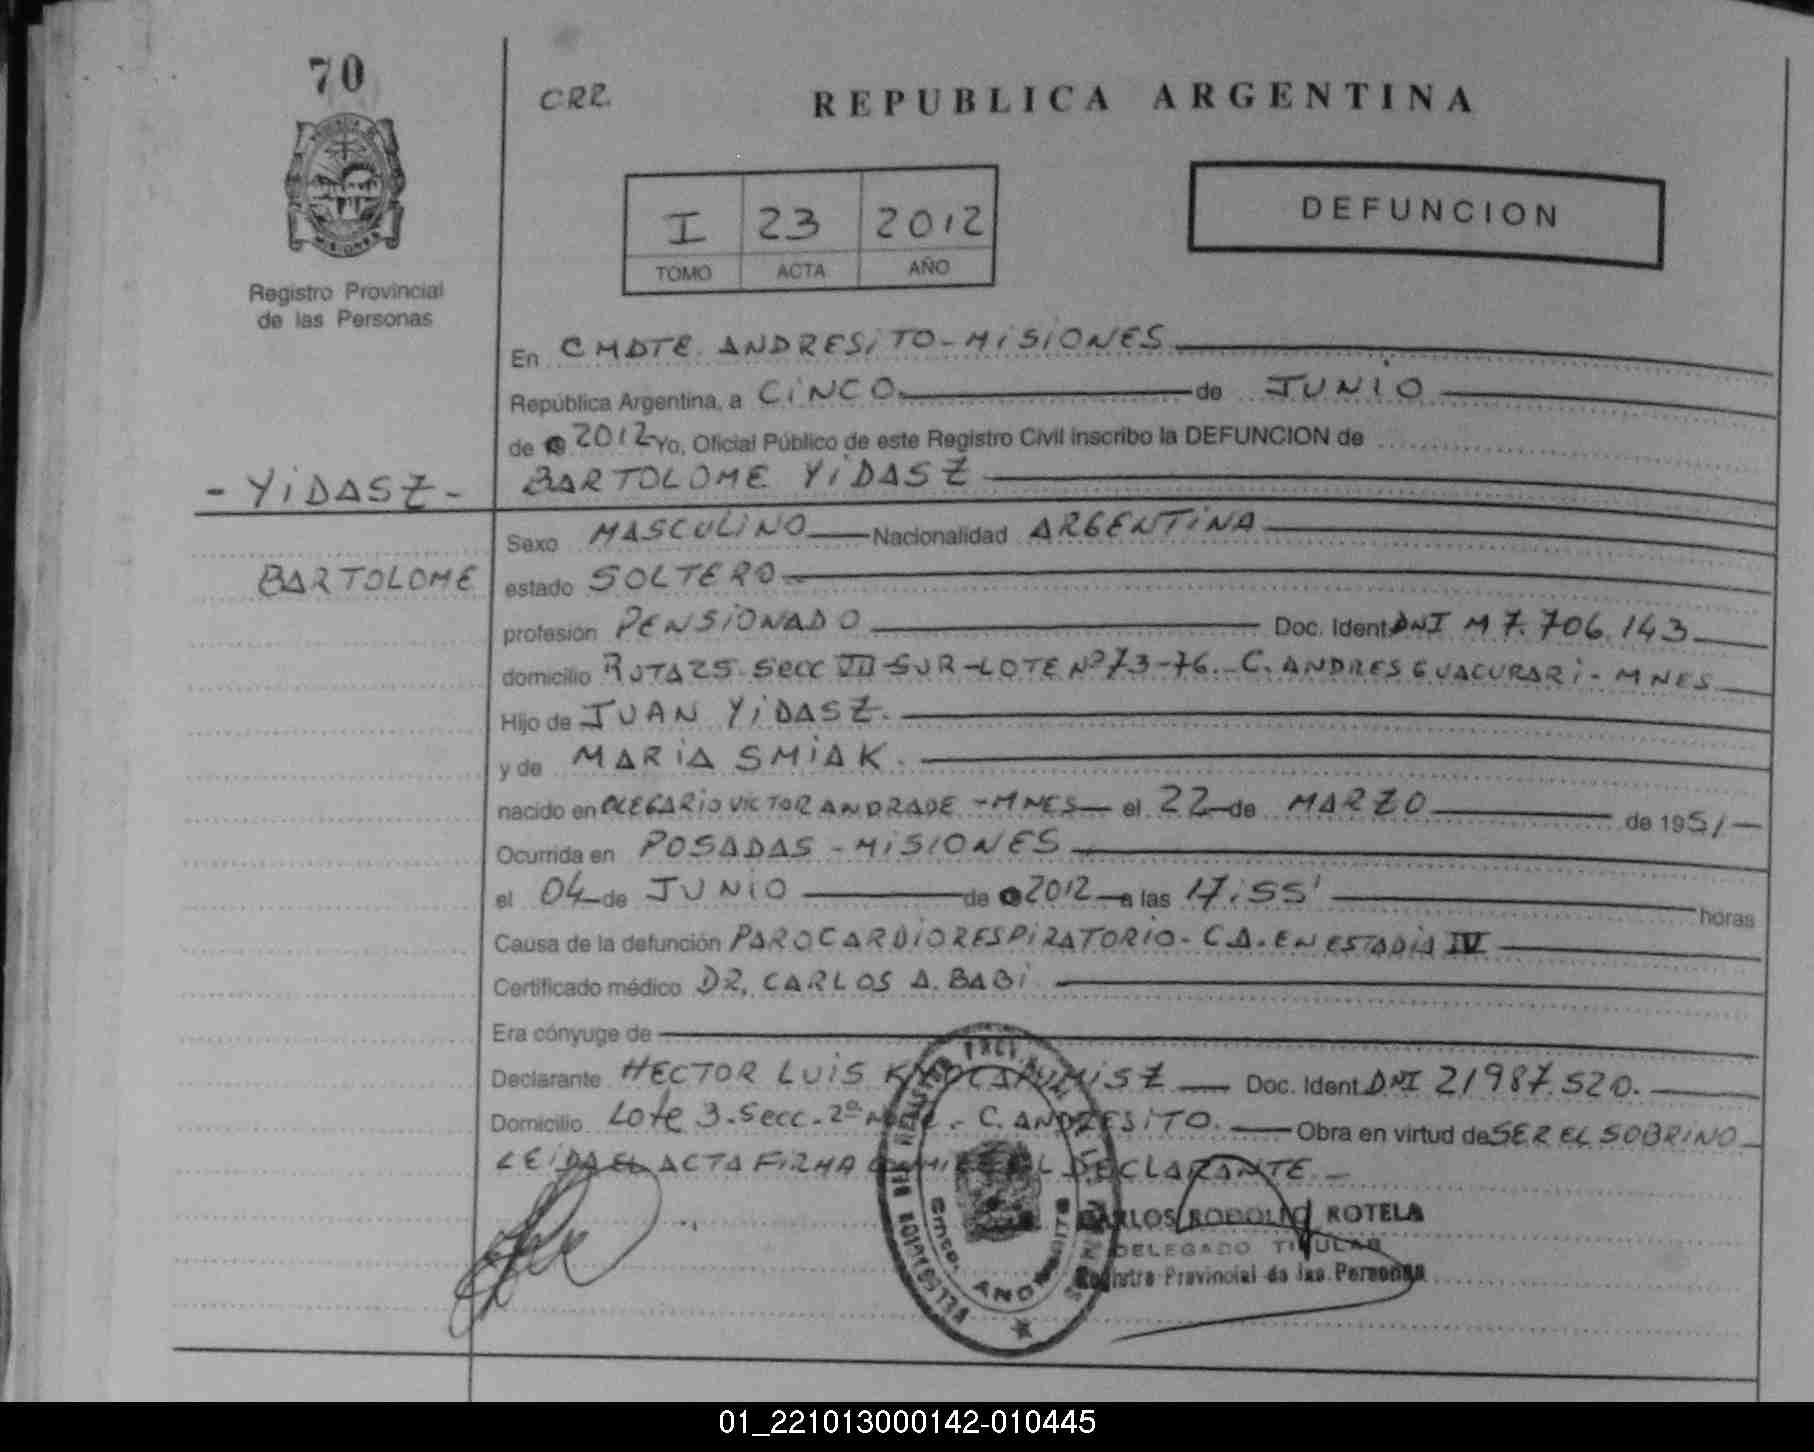 70
CRR.
REPUBLICA ARGENTINA
I 23 2012
TOMO ACTA AÑO
DEFUNCION
Registro Provincial
de las Personas
En CMDTE. ANDRESITO-MISIONES
República Argentina, a CINCO de JUNIO
de 2012 Yo, Oficial Público de este Registro Civil inscribo la DEFUNCION de
- YIDASZ - BARTOLOME YIDASZ
Sexo MASCULINO Nacionalidad ARGENTINA
BARTOLOME estado SOLTERO
profesión PENSIONADO Doc. Ident. DNI M 7.706.143
domicilio RUTA 25 - Secc VII-SUR-LOTE Nº 73-76 - C. ANDRES GUACURARI - MNES
Hijo de JUAN YIDASZ.
y de MARIA SMIAK.
nacido en OLEGARIO VICTOR ANDRADE - MNES el 22 de MARZO de 1951
Ocurrida en POSADAS - MISIONES
el 04 de JUNIO de 2012 a las 17:55' horas
Causa de la defunción PAROCARDIORESPIRATORIO - C.A. EN ESTADIA IV
Certificado médico DR. CARLOS A. BABI
Era cónyuge de
Declarante HECTOR LUIS Doc. Ident. DNI 21987.520.
Domicilio Lote 3 - Secc - 2ª - C. ANDRESITO. Obra en virtud de SER EL SOBRINO
LEIDA EL ACTA FIRMA DECLARANTE.
CARLOS RODOLFO ROTELA
DELEGADO TITULAR
Registro Provincial de las Personas
01_221013000142-010445